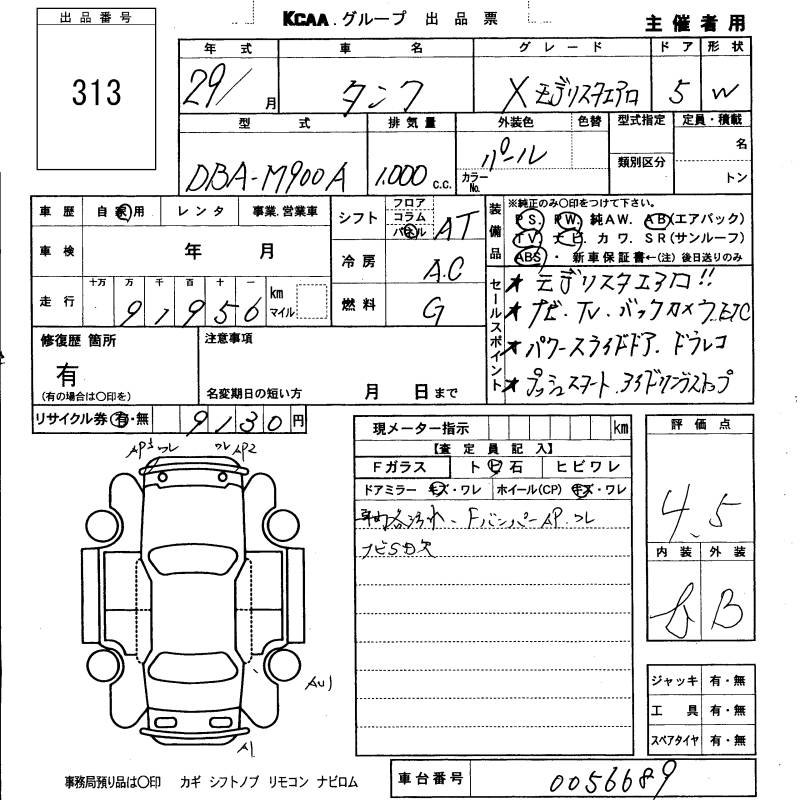 出品番号
313
KCAA グループ 出品票
主催者用
年式 車名 グレード ドア 形状
29/ 月 タンク X モデリスタエアロ 5 W
型式 排気量 外装色 色替 型式指定 定員・積載
DBA-M900A 1.000 c.c. パール カラーNo. 類別区分 名
トン
車歴 自家用 レンタ 事業.営業車
シフト フロア コラム パネル AT
装備品 ※純正のみ〇印をつけて下さい。
PS. PW. 純AW. AB(エアバック)
TV. ナビ. カワ. SR(サンルーフ)
ABS ・ 新車保証書←(注) 後日送りのみ
車検 年 月
冷房 A.C
走行 十万 万 千 百 十 一
91956 km マイル
燃料 G
セールスポイント
★ モデリスタエアロ!!
★ ナビ・TV.バックカメラ.ETC
★ パワースライドドア.ドラレコ
★ プッシュスタート.アイドリングストップ
修復歴 箇所
有
(有の場合は〇印を)
注意事項
名変期日の短い方 月 日まで
リサイクル券 有・無 9130 円
現メーター指示 km
【査定員記入】
Fガラス ト ビ 石 ヒビワレ
ドアミラー キズ・ワレ ホイール(CP) キズ・ワレ
車内各汚れ.FバンパーAP.ワレ
ナビSD欠
評価点
4.5
内装 外装
B
AP3 ワレ ワレ AP2
AU1
A1
ジャッキ 有・無
工具 有・無
スペアタイヤ 有・無
事務局預り品は〇印 カギ シフトノブ リモコン ナビロム
車台番号 0056689